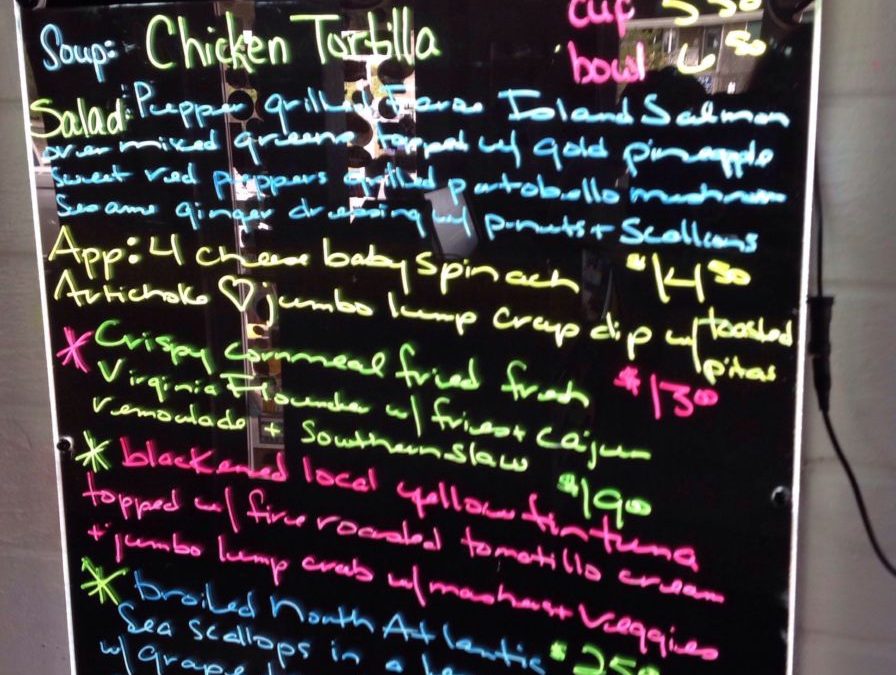 Soup: Chicken Tortilla cup 5 50
bowl 6 50
Salad: Pepper grilled Faroe Island Salmon
over mixed greens topped w/ gold pineapple
sweet red peppers grilled portobello mushroom
Sesame ginger dressing w/ p-nuts + Scallions
$14 50
App: 4 cheese baby spinach
Artichoke ♡ jumbo lump crap dip w/ toasted
pitas
$13 00
* Crispy cornmeal fried fresh
Virginia Flounder w/ fries + cajun
remoulade + Southern slaw $19 00
* blackened local yellowfin tuna
topped w/ fire roasted tomatillo cream
+ jumbo lump crab w/ mashers + Veggies
$25 00
* broiled North Atlantic
Sea scallops in a
w/ grape